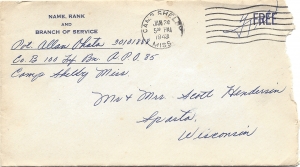 NAME, RANK
AND
BRANCH OF SERVICE
Pvt. Allan
Co. B 100 Inf Bn A.P.O. 35
Camp Shelby Miss.
CAMP SHELBY
5 PM
1943
MISS.
FREE
Mr & Mrs. Scott Henderson
Sparta,
Wisconsin